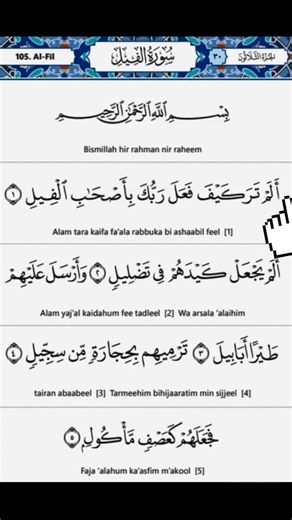 105. Al-Fil سُورَةُ الْفِيلِ ٣٠ الجزء الثلاثون
بِسْمِ اللَّهِ الرَّحْمَٰنِ الرَّحِيمِ
Bismillah hir rahman nir raheem
أَلَمْ تَرَ كَيْفَ فَعَلَ رَبُّكَ بِأَصْحَٰبِ الْفِيلِ ١
Alam tara kaifa fa'ala rabbuka bi ashaabil feel [1]
أَلَمْ يَجْعَلْ كَيْدَهُمْ فِي تَضْلِيلٍ ٢ وَأَرْسَلَ عَلَيْهِمْ
Alam yaj'al kaidahum fee tadleel [2] Wa arsala 'alaihim
طَيْرًا أَبَابِيلَ ٣ تَرْمِيهِم بِحِجَارَةٍ مِّن سِجِّيلٍ ٤
tairan abaabeel [3] Tarmeehim bihijaaratim min sijjeel [4]
فَجَعَلَهُمْ كَعَصْفٍ مَّأْكُولٍ ٥
Faja 'alahum ka'asfim m'akool [5]